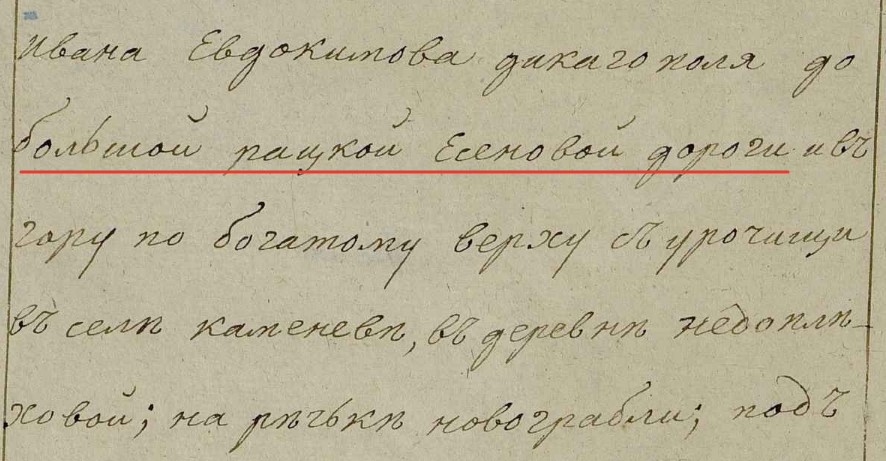 ивана Евдокимова дикаго поля до
большой рацкой Есеновой дороги и въ
гору по богатому верху съ урочищи
въ селѣ каменевѣ, въ деревнѣ недоплѣ-
ховой; на рѣчькѣ новограбли; подъ